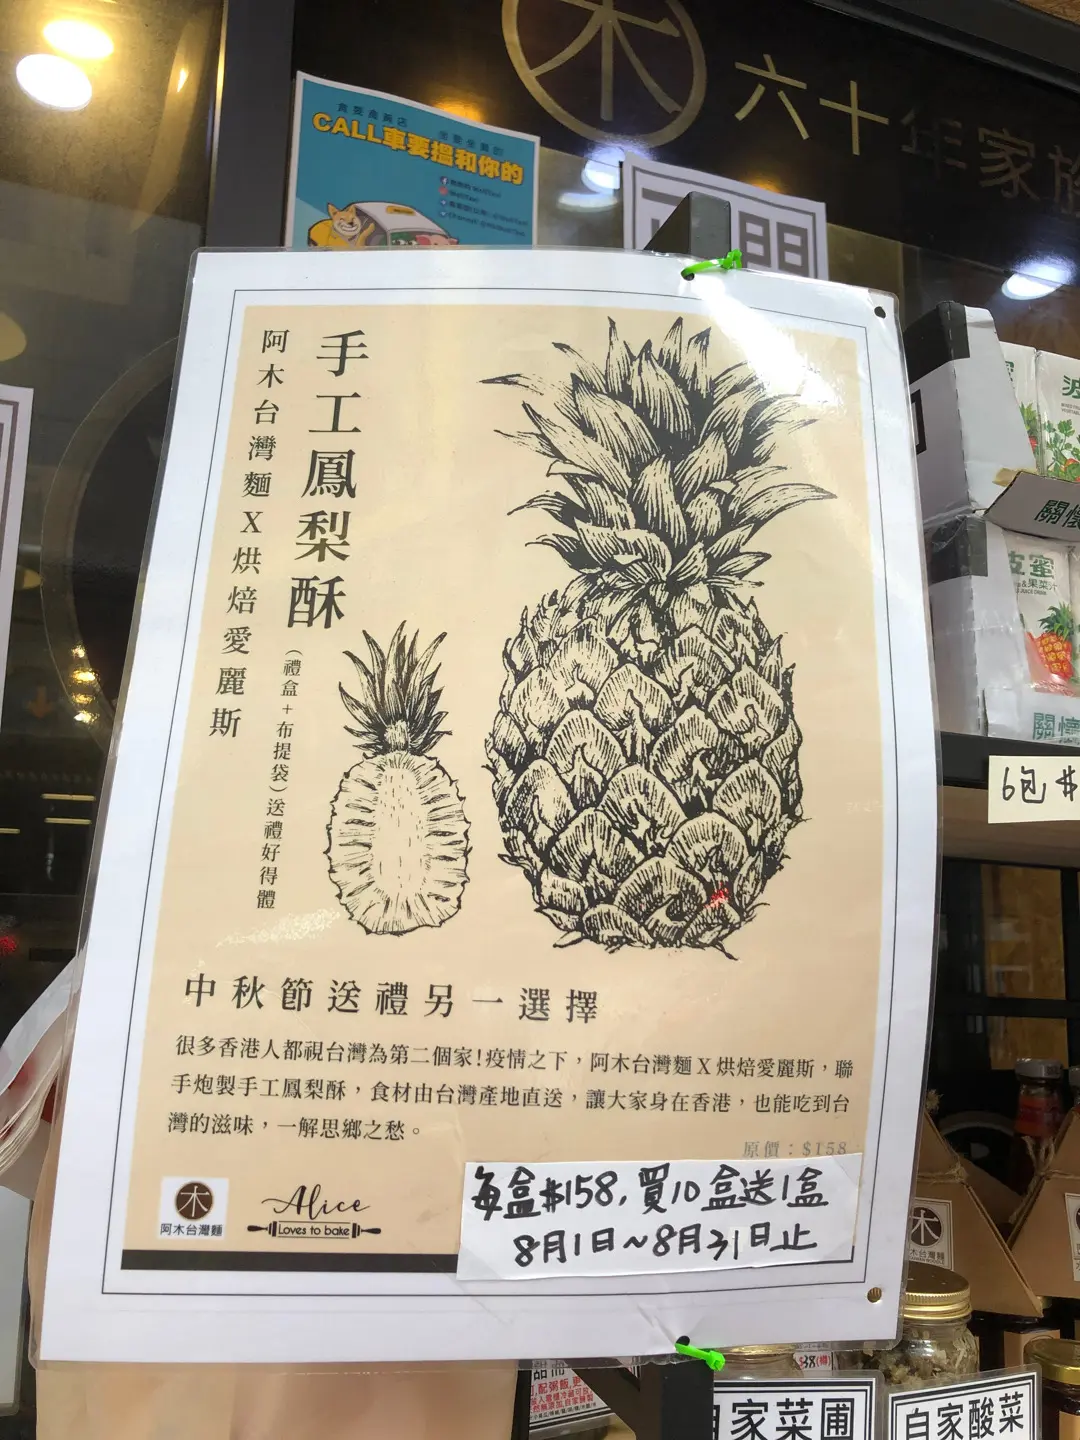 木
六十年家族
食買產與店
CALL車要搵和你的
門
手工鳳梨酥
阿木台灣麵X烘焙愛麗斯
（禮盒+布提袋）送禮好得體
中秋節送禮另一選擇
很多香港人都視台灣為第二個家!疫情之下，阿木台灣麵X烘焙愛麗斯，聯
手炮製手工鳳梨酥，食材由台灣產地直送，讓大家身在香港，也能吃到台
灣的滋味，一解思鄉之愁。
原價：$158
每盒$158,買10盒送1盒
8月1日~8月31日止
木
阿木台灣麵
Alice
Loves to bake
波
關懷
皮蜜
&果菜汁
關懷
6包$
木
木台灣麵
$38(樽)
配粥飯
自家菜圃
自家酸菜